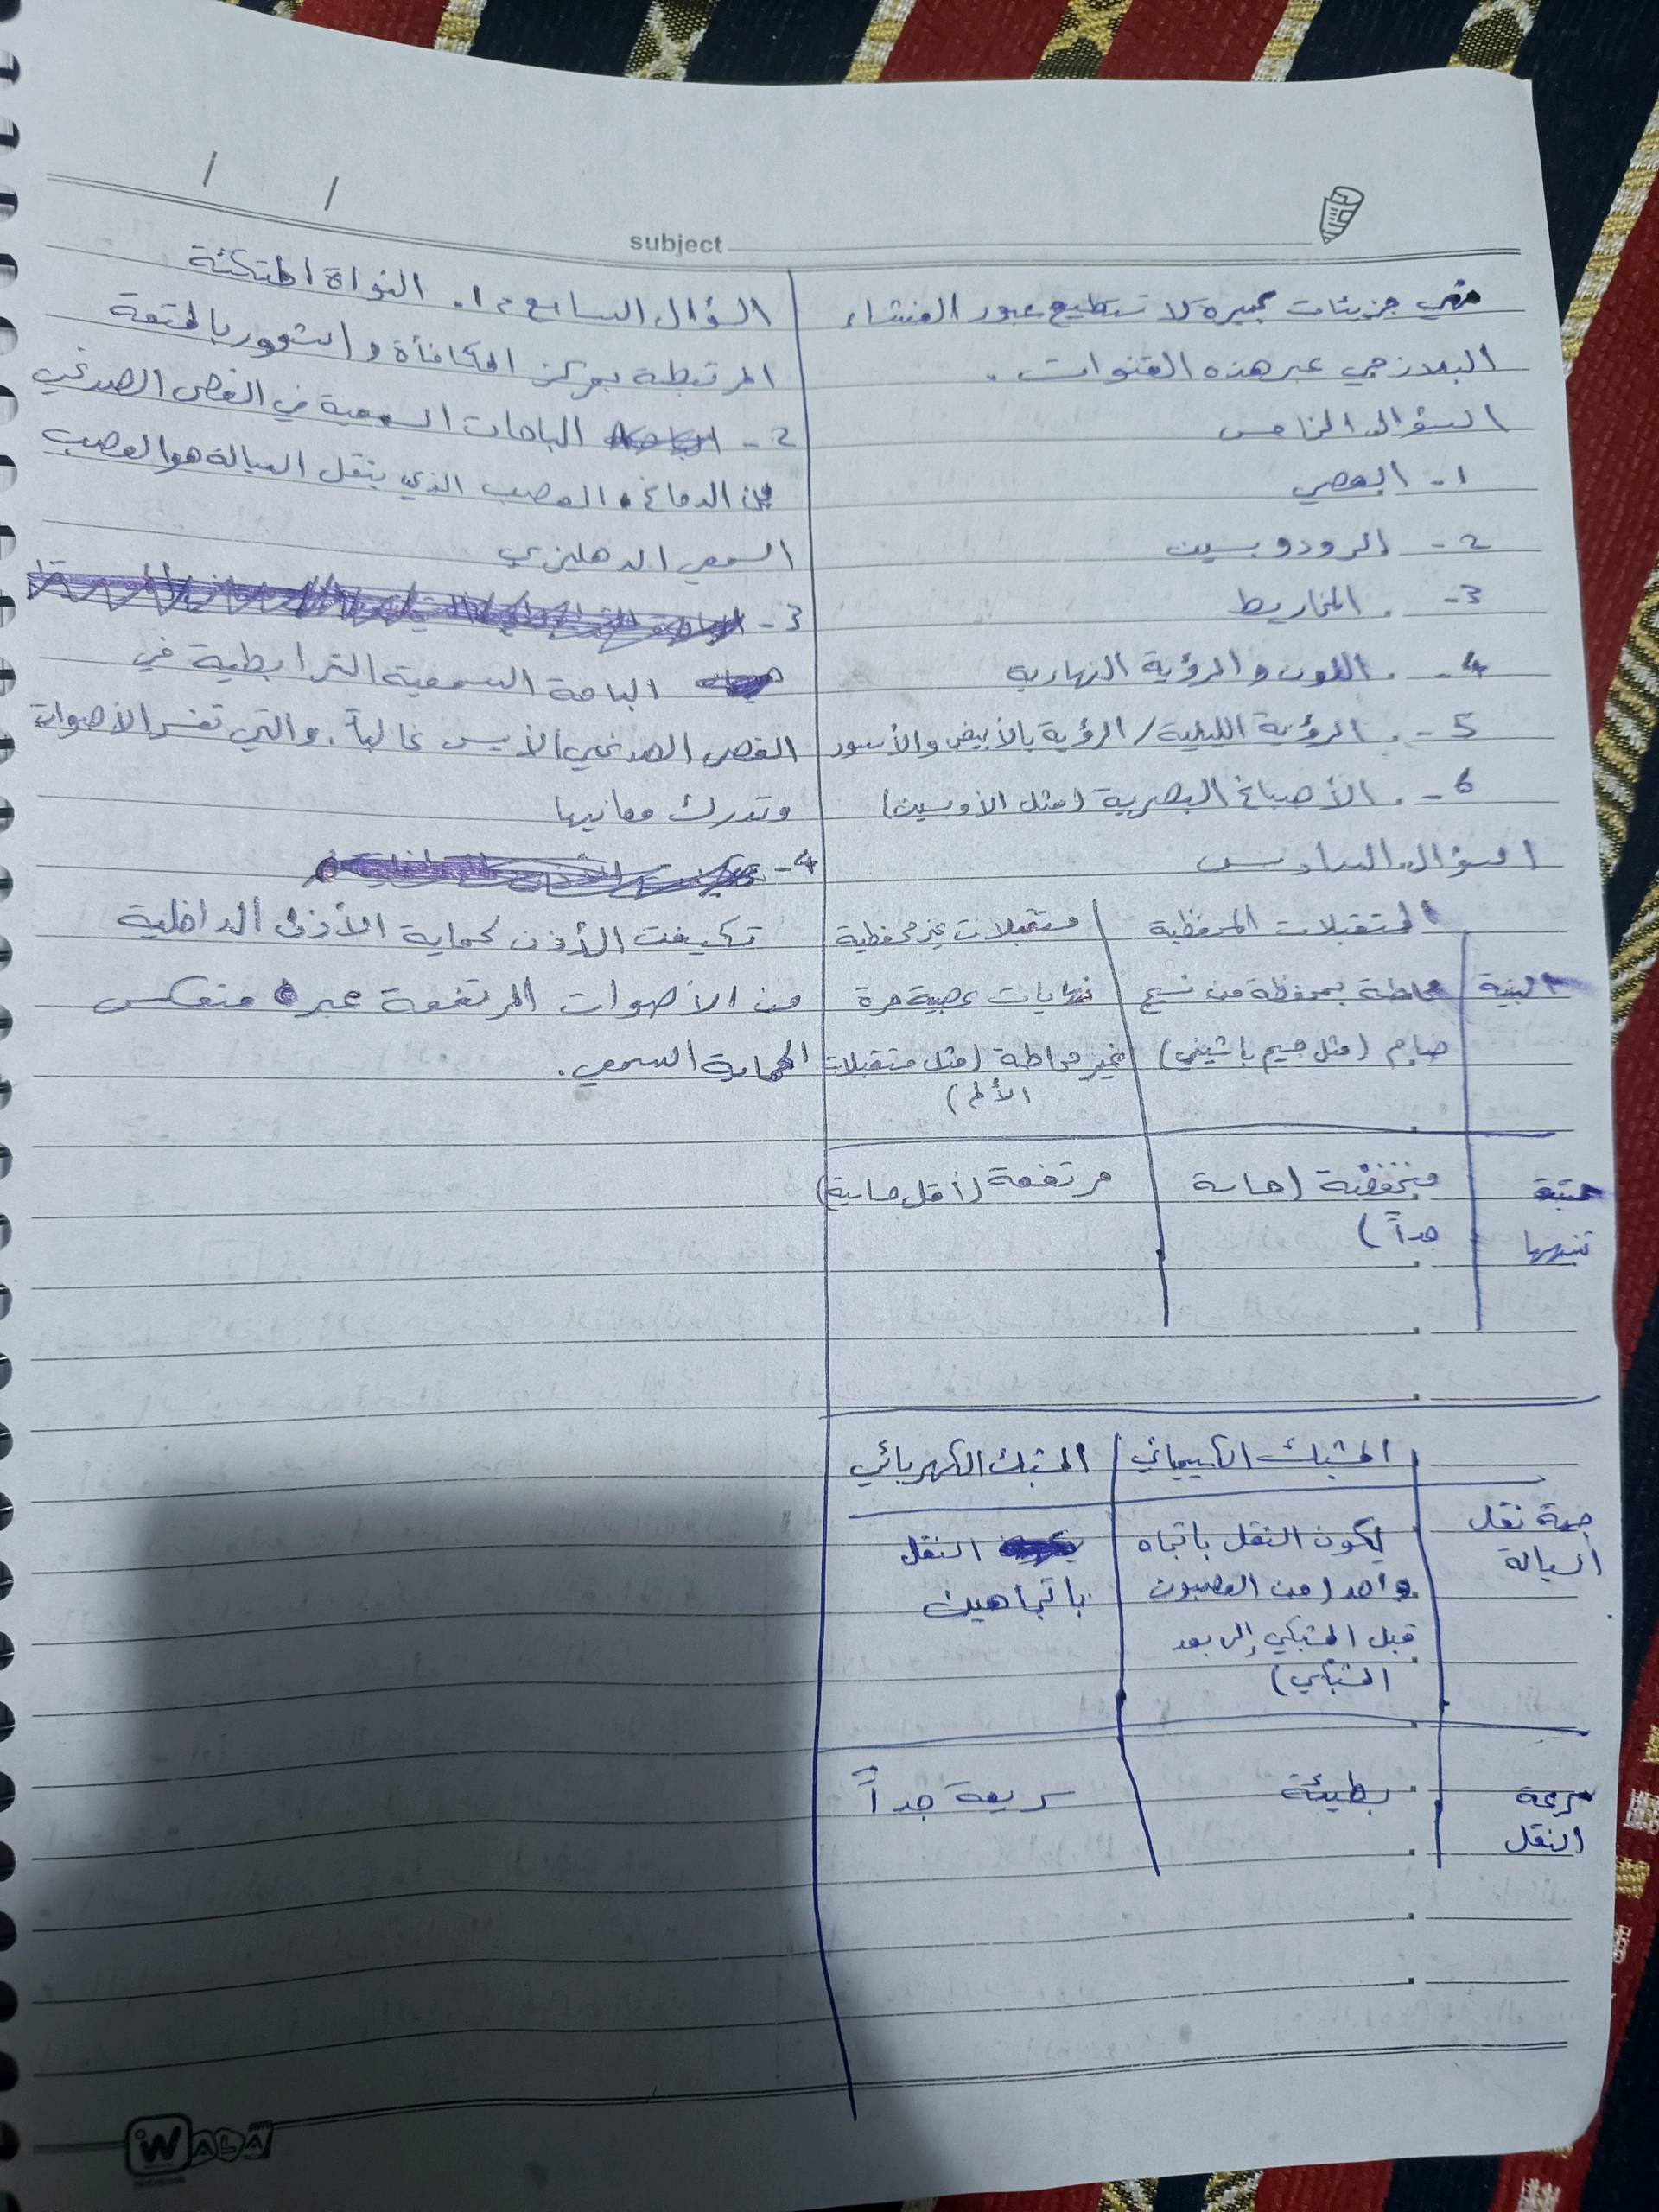 subject
فهي جزيئات كبيرة لا تستطيع عبور الغشاء
البلازمي عبر هذه القنوات .
السؤال الخامس
1- العصي
2- الرودوبسين
3- المخاريط
4- اللون والرؤية النهارية
5- الرؤية الليلية / الرؤية بالأبيض والأسود
6- الأصباغ البصرية (مثل الأوبسين)
السؤال السادس
المستقبلات المحفظية | مستقبلات غير محفظية
البنية | محاطة بمحفظة من نسيج | نهايات عصبية حرة
ضام (مثل جسيم باشيني) | غير محاطة (مثل مستقبلات
الألم)
عتبة | منخفضة (حساسة | مرتفعة (أقل حساسية)
تنبيهها | جداً)
المشبك الكيميائي | المشبك الكهربائي
جهة نقل | يكون النقل باتجاه | النقل
السيالة | واحد (من العصبون | باتجاهين
قبل المشبكي إلى بعد
المشبكي)
سرعة | بطيئة | سريعة جداً
النقل
السؤال السابع : 1. النواة المتكئة
المرتبطة بمركز المكافأة والشعور بالمتعة
2- الباحات السمعية في الفص الصدغي
من الدماغ . العصب الذي ينقل السيالة هو العصب
السمعي الدهليزي
3-
الباحة السمعية الترابطية في
الفص الصدغي الأيسر غالباً . والتي تفسر الأصوات
وتدرك معانيها
4-
تكيفت الأذن لحماية الأذن الداخلية
من الأصوات المرتفعة عبر منعكس
الحماية السمعي .
WALA